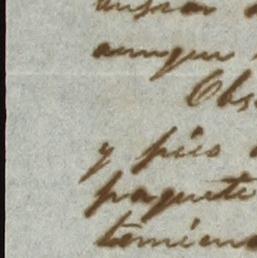 aunque
Obs
y pico
paquete
temien